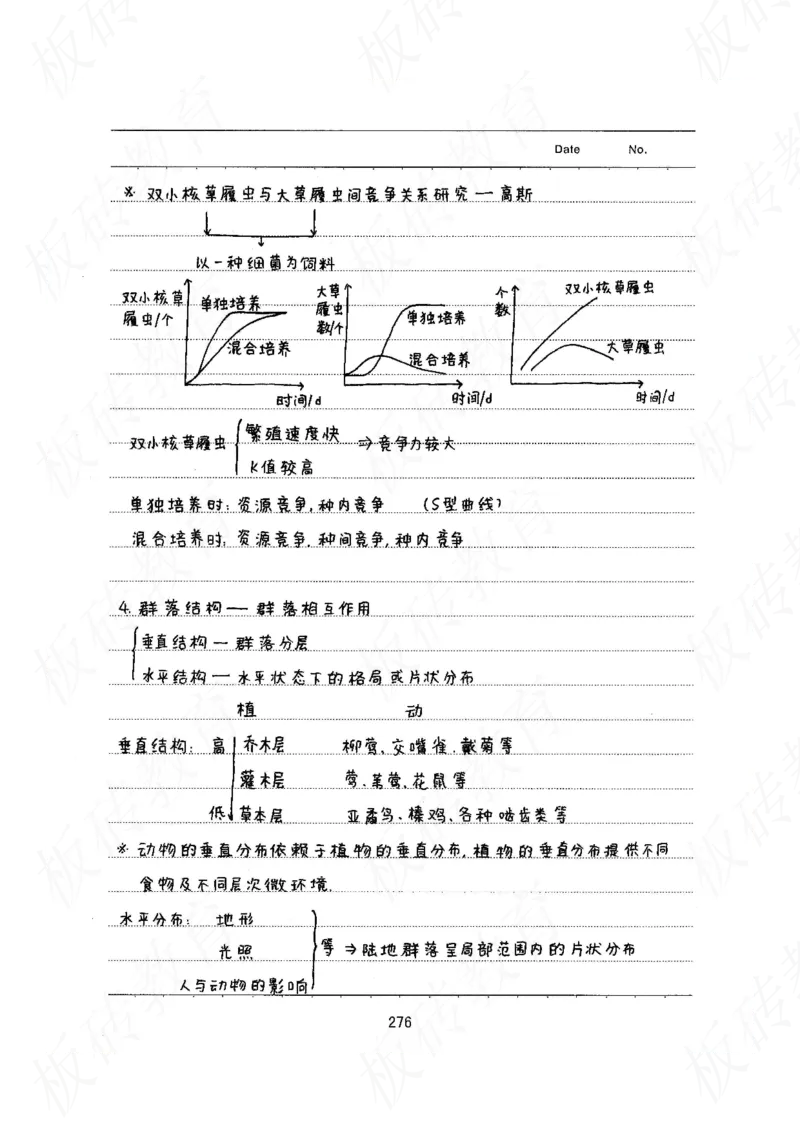 Date No.
※ 双小核草履虫与大草履虫间竞争关系研究 — 高斯
以一种细菌为饲料
双小核草履虫/个 单独培养 混合培养 时间/d
大草履虫数/个 单独培养 混合培养 时间/d
个数 双小核草履虫 大草履虫 时间/d
双小核草履虫 { 繁殖速度快 ⇒ 竞争力较大
K值较高
单独培养时: 资源竞争, 种内竞争 (S型曲线)
混合培养时: 资源竞争, 种间竞争, 种内竞争
4. 群落结构 — 群落相互作用
垂直结构 — 群落分层
水平结构 — 水平状态下的格局或片状分布
植 动
垂直结构: 高 乔木层 柳莺、交嘴雀、戴菊等
灌木层 莺、苇莺、花鼠等
低 草本层 亚孟鸟、榛鸡、各种啮齿类等
※ 动物的垂直分布依赖于植物的垂直分布, 植物的垂直分布提供不同
食物及不同层次微环境.
水平分布: 地形
光照 等 ⇒ 陆地群落呈局部范围内的片状分布
人与动物的影响
276
板砖教育